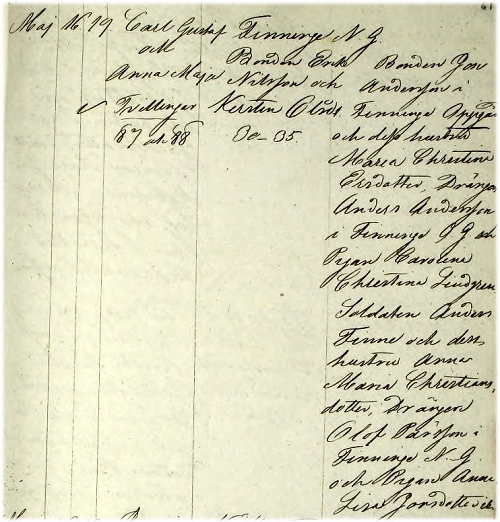 Maj 16. 19 Carl Gustaf Finninge N G.
och Bonden Erik Bonden Jon
Anna Maja Nilsson och Andersson i
Tvillingar Kersten Olsdr. Finninge Oppgår
87 och 88 30–35. och dess hustru
Maria Christina
Ersdotter, Drängen
Anders Andersson
i Finninge O G och
Pigan Carolina
Christina Lindgren
Soldaten Anders
Finne och dess
hustru Anna
Maria Christians
dotter, Drängen
Olof Pärsson i
Finninge N. G.
och Pigan Anna
Lisa Jonsdotter ibid